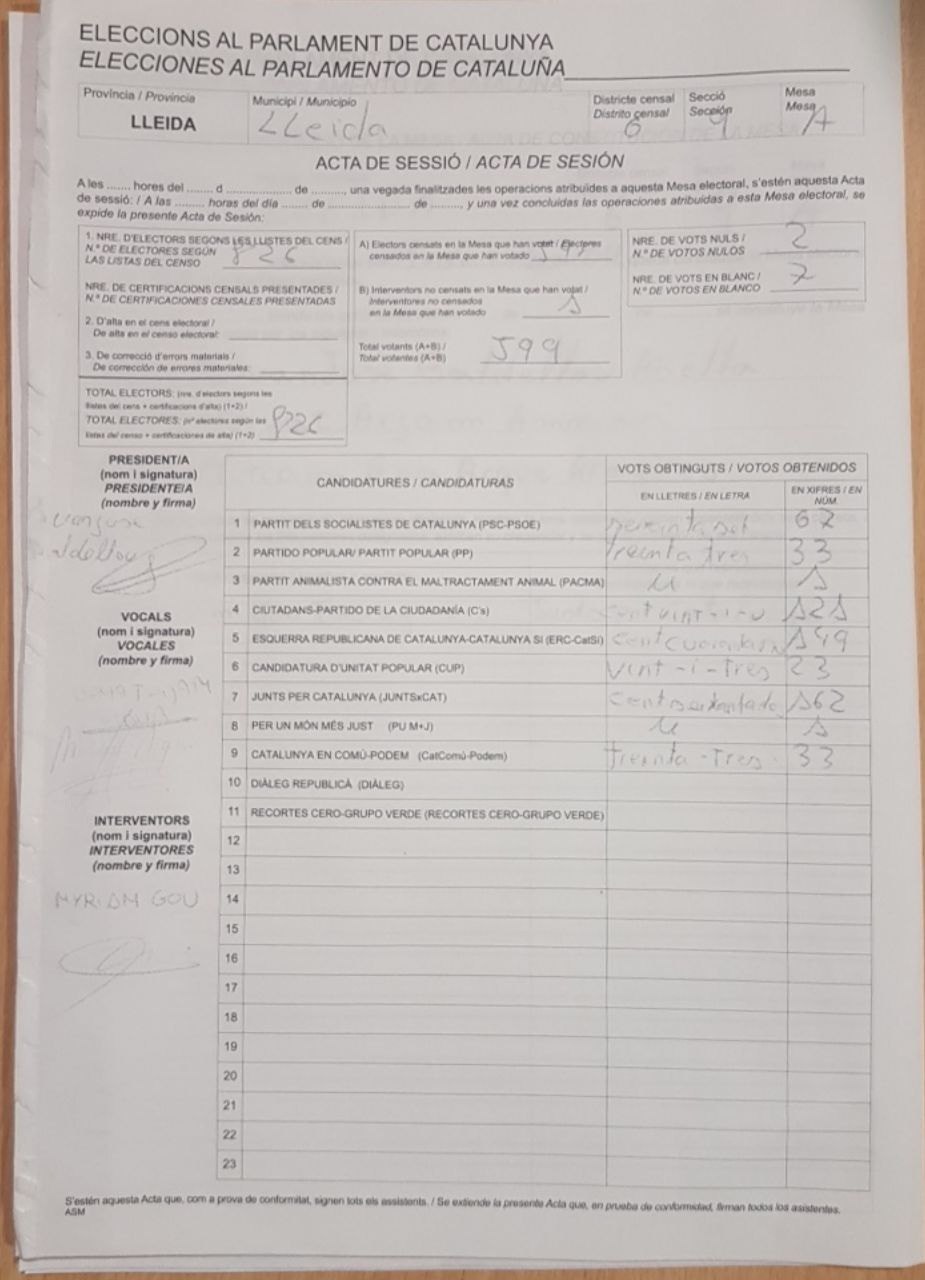 ELECCIONS AL PARLAMENT DE CATALUNYA
ELECCIONES AL PARLAMENTO DE CATALUÑA
Província / Provincia
LLEIDA
Municipi / Municipio
LLeida
Districte censal
Distrito censal
6
Secció
Sección
9
Mesa
Mesa
A
ACTA DE SESSIÓ / ACTA DE SESIÓN
A les ....... hores del ........ d .................... de .........., una vegada finalitzades les operacions atribuïdes a aquesta Mesa electoral, s'estén aquesta Acta
de sessió: / A las ......... horas del día ....... de ........................ de ........, y una vez concluidas las operaciones atribuidas a esta Mesa electoral, se
expide la presente Acta de Sesión:
1. NRE. D'ELECTORS SEGONS LES LLISTES DEL CENS /
N.º DE ELECTORES SEGÚN
LAS LISTAS DEL CENSO
826
NRE. DE CERTIFICACIONS CENSALS PRESENTADES /
N.º DE CERTIFICACIONES CENSALES PRESENTADAS
2. D'alta en el cens electoral /
De alta en el censo electoral:
3. De correcció d'errors materials /
De corrección de errores materiales:
TOTAL ELECTORS: (nre. d'electors segons les
llistes del cens + certificacions d'alta) (1+2) /
TOTAL ELECTORES: (nº electores según las
listas del censo + certificaciones de alta) (1+2)
826
A) Electors censats en la Mesa que han votat / Electores
censados en la Mesa que han votado
B) Interventors no censats en la Mesa que han votat /
Interventores no censados
en la Mesa que han votado
1
Total votants (A+B) /
Total votantes (A+B)
599
NRE. DE VOTS NULS /
N.º DE VOTOS NULOS
2
NRE. DE VOTS EN BLANC /
N.º DE VOTOS EN BLANCO
7
PRESIDENT/A
(nom i signatura)
PRESIDENTE/A
(nombre y firma)
VOCALS
(nom i signatura)
VOCALES
(nombre y firma)
INTERVENTORS
(nom i signatura)
INTERVENTORES
(nombre y firma)
MYRIAM GOU
CANDIDATURES / CANDIDATURAS
VOTS OBTINGUTS / VOTOS OBTENIDOS
EN LLETRES / EN LETRA
EN XIFRES / EN
NÚM.
1 PARTIT DELS SOCIALISTES DE CATALUNYA (PSC-PSOE) 67
2 PARTIDO POPULAR/ PARTIT POPULAR (PP) treinta tres 33
3 PARTIT ANIMALISTA CONTRA EL MALTRACTAMENT ANIMAL (PACMA) u 1
4 CIUTADANS-PARTIDO DE LA CIUDADANÍA (C's) cent vint-i-u 121
5 ESQUERRA REPUBLICANA DE CATALUNYA-CATALUNYA SÍ (ERC-CatSí) 149
6 CANDIDATURA D'UNITAT POPULAR (CUP) vint-i-tres 23
7 JUNTS PER CATALUNYA (JUNTSxCAT) 162
8 PER UN MÓN MÉS JUST (PU M+J) u 1
9 CATALUNYA EN COMÚ-PODEM (CatComú-Podem) treinta-tres 33
10 DIÀLEG REPUBLICÀ (DIÀLEG)
11 RECORTES CERO-GRUPO VERDE (RECORTES CERO-GRUPO VERDE)
12
13
14
15
16
17
18
19
20
21
22
23
S'estén aquesta Acta que, com a prova de conformitat, signen tots els assistents. / Se extiende la presente Acta que, en prueba de conformidad, firman todos los asistentes.
ASM